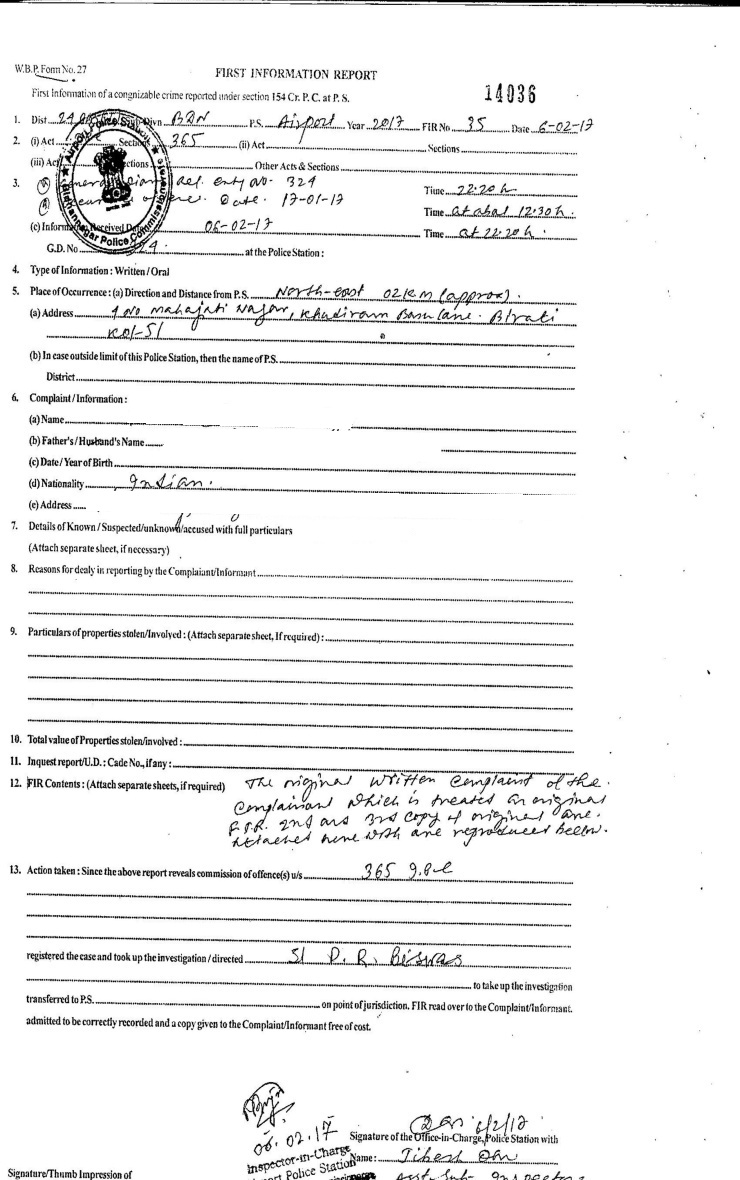 W.B.P. Form No. 27
FIRST INFORMATION REPORT
First Information of a congnizable crime reported under section 154 Cr. P. C. at P. S.
14036
1. Dist. Sub-Divn BDN P.S. Airport Year 2017 FIR No. 35 Date 6-02-17
2. (i) Act Sections 365 (ii) Act Sections
(iii) Act Sections Other Acts & Sections
3. Ref. entry no. 324 Time 22:20 h
Date. 17-01-17 Time at abat 12:30 h.
(c) Information Received Date 06-02-17 Time at 22:20 h.
G.D. No. at the Police Station :
4. Type of Information : Written / Oral
5. Place of Occurrence : (a) Direction and Distance from P.S. North-east 02 KM (approx).
(a) Address 1 No Mahajati Nagar, Khudiram Basu Lane. Birati
Kol-51
(b) In case outside limit of this Police Station, then the name of P.S.
District
6. Complaint / Information :
(a) Name
(b) Father's / Husband's Name
(c) Date / Year of Birth
(d) Nationality Indian.
(e) Address
7. Details of Known / Suspected/unknown/accused with full particulars
(Attach separate sheet, if necessary)
8. Reasons for dealy in reporting by the Complaiant/Informant
9. Particulars of properties stolen/Involved : (Attach separate sheet, If required) :
10. Total value of Properties stolen/involved :
11. Inquest report/U.D. : Cade No., if any :
12. FIR Contents : (Attach separate sheets, if required) The original written complaint of the
complainant which is treated as original
F.I.R. 2nd and 3rd copy of original are
attached here with are reproduced bellow.
13. Action taken : Since the above report reveals commission of offence(s) u/s 365 I.P.C
registered the case and took up the investigation / directed SI P. R. Biswas
to take up the investigation
transferred to P.S. on point of jurisdiction. FIR read over to the Complaint/Informant.
admitted to be correctly recorded and a copy given to the Complaint/Informant free of cost.
06.02.17
6/2/17
Signature of the Office-in-Charge, Police Station with
Inspector-in-Charge
Name :
Airport Police Station
Asst. Sub- Inspector
Signature/Thumb Impression of